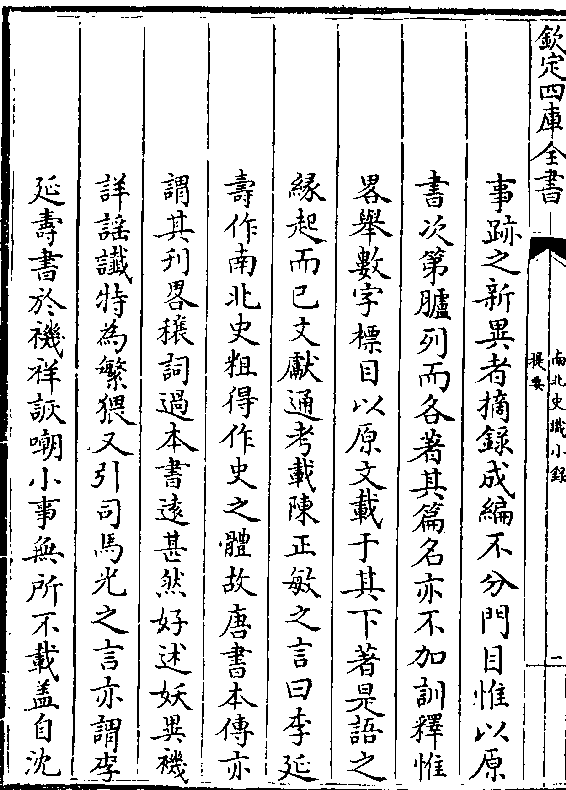 欽定四庫全書
南北史識小録
提要
二
事跡之新異者摘錄成編不分門目惟以原
書次第臚列而各著其篇名亦不加訓釋惟
畧舉數字標目以原文載于其下著是語之
緣起而已文獻通考載陳正敏之言曰李延
壽作南北史粗得作史之體故唐書本傳亦
謂其刋畧穣詞過本書遠甚然好述妖異禨
詳謡讖特為繁猥又引司馬光之言亦謂李
延壽書於禨祥詼嘲小事無所不載盖自沈